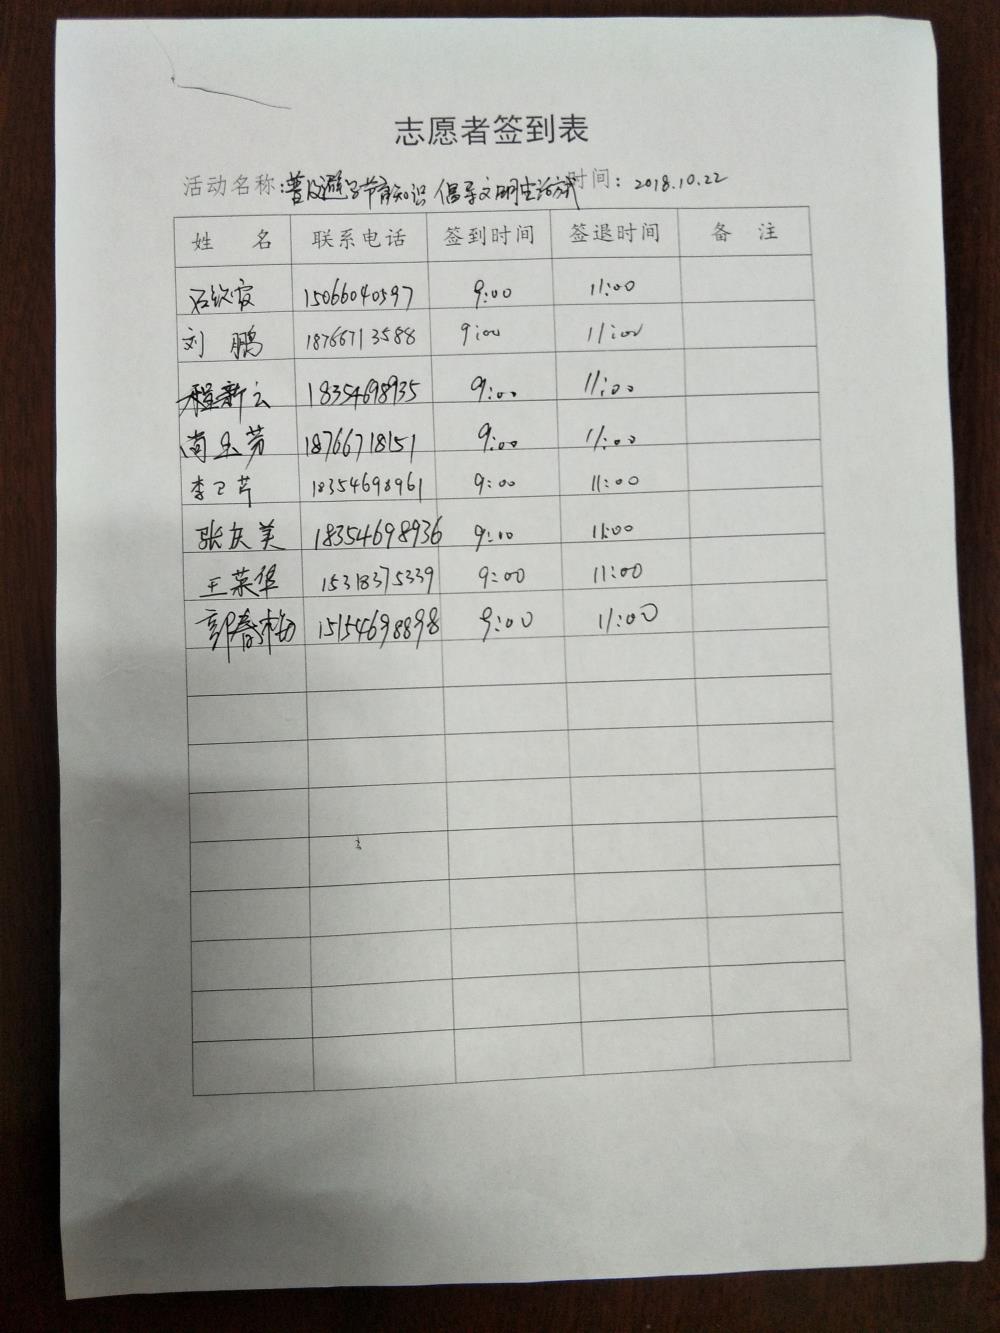 志愿者签到表
活动名称:普及避孕节育知识 倡导文明生活方式 时间: 2018.10.22
姓 名 联系电话 签到时间 签退时间 备 注
15066040597 9:00 11:00
刘 鹏 18766713588 9:00 11:00
程新云 18354698935 9:00 11:00
尚玉芳 18766718151 9:00 11:00
李卫芹 18354698961 9:00 11:00
张庆美 18354698936 9:00 11:00
王荣华 15318375339 9:00 11:00
郭春梅 15154698898 9:00 11:00